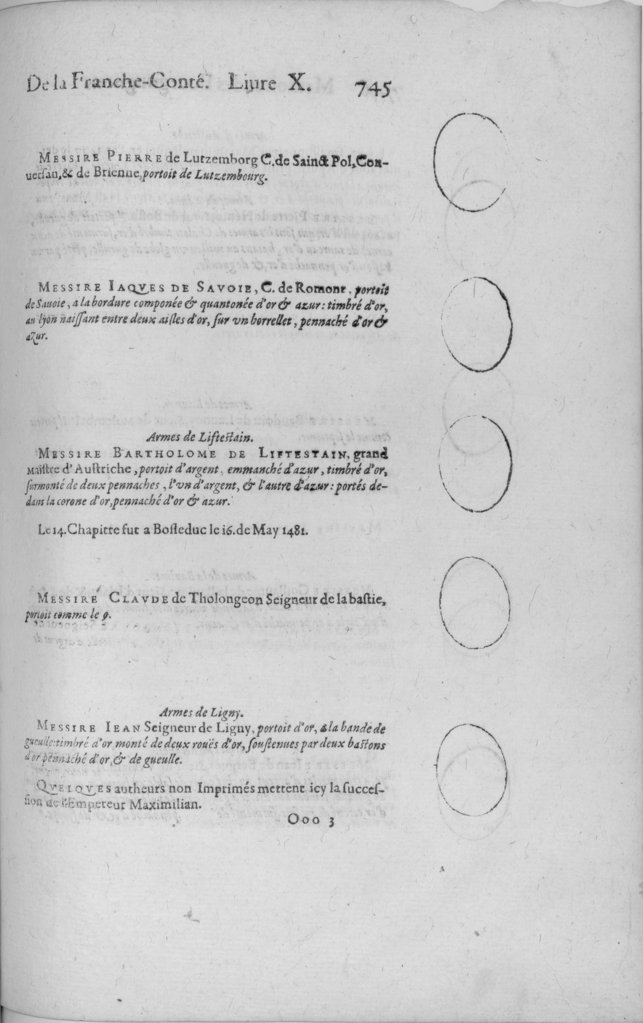 De la Franche-Conté. Liure X. 745
MESSIRE PIERRE de Lutzemborg C. de Sainct Pol, Con-
uersan, & de Brienne, portoit de Lutzembourg.
MESSIRE IAQVES DE SAVOIE, C. de Romont, portoit
de Sauoie, a la bordure componée & quantonée d'or & azur: timbré d'or,
au lyon naissant entre deux aisles d'or, sur vn borrellet, pennaché d'or &
azur.
Armes de Liftestain.
MESSIRE BARTHOLOME DE LIFTESTAIN, grand
Maistre d'Austriche, portoit d'argent, emmanché d'azur, timbré d'or,
surmonté de deux pennaches, l'vn d'argent, & l'autre d'azur: portés de-
dans la corone d'or, pennaché d'or & azur.
Le 14. Chapitre fut a Bosleduc le i6. de May 1481.
MESSIRE CLAVDE de Tholongeon Seigneur de la bastie,
portoit comme le 9.
Armes de Ligny.
MESSIRE IEAN Seigneur de Ligny, portoit d'or, a la bande de
gueulle: timbré d'or monté de deux rouës d'or, soustenues par deux bastons
d'or pennaché d'or, & de gueulle.
QVELQVES autheurs non Imprimés mettent icy la succes-
sion de l'Empereur Maximilian.
Ooo 3